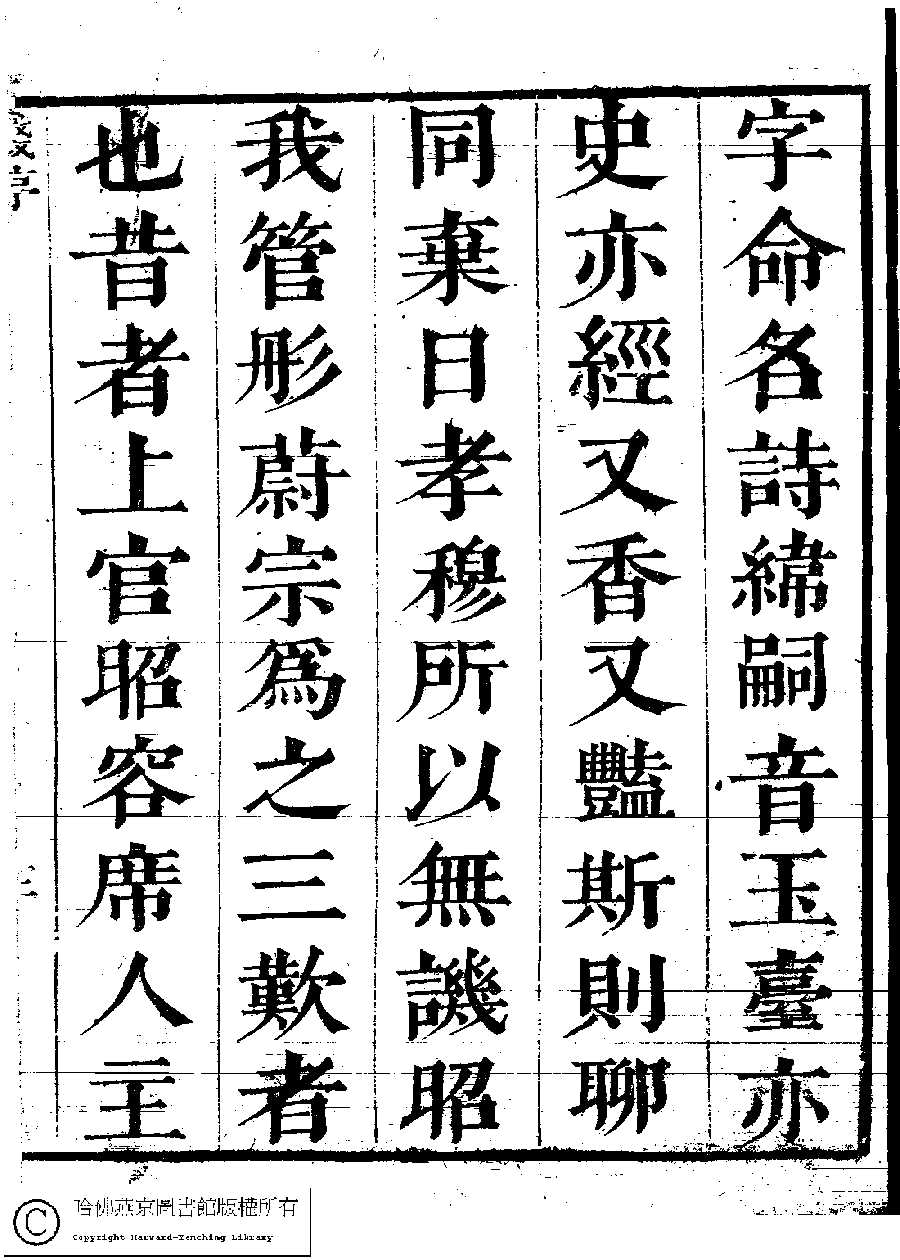 字命名詩緯嗣音玉臺亦
史亦經又香又豔斯則聊
同棄日孝穆所以無譏昭
我管形蔚宗爲之三歎者
也昔者上官昭容席人主
哈佛燕京圖書館版權所有
Copyright Harvard-Yenching Library